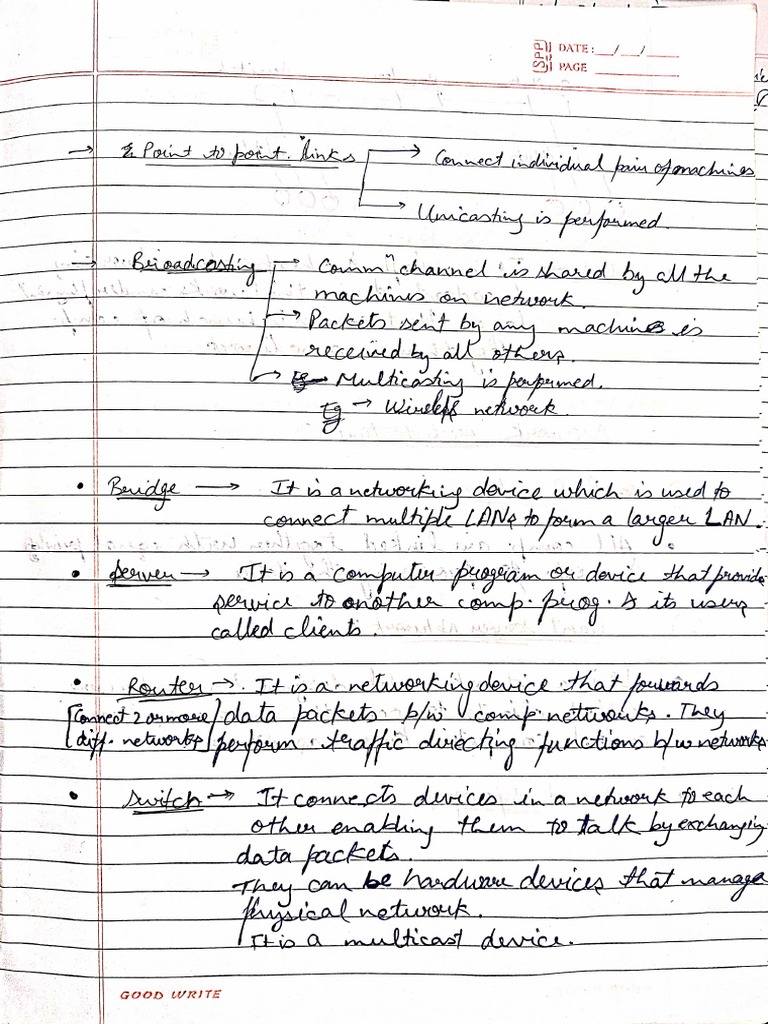 SPP DATE: __/__/__
PAGE
→ Point to point links → Connect individual pair of machines
→ Unicasting is performed.
→ Broadcasting → Commⁿ channel is shared by all the
machines on network.
→ Packets sent by any machine is
received by all others.
→ Multicasting is performed.
Eg → Wireless network.
• Bridge → It is a networking device which is used to
connect multiple LANs to form a larger LAN.
• Server → It is a computer program or device that provide
service to another comp. prog. & its users
called clients.
• Router → It is a networking device that forwards
[Connect 2 or more data packets b/w comp networks. They
diff. networks] perform traffic directing functions b/w networks
• Switch → It connects devices in a network to each
other enabling them to talk by exchanging
data packets.
They can be hardware devices that manage
physical network.
It is a multicast device.
GOOD WRITE